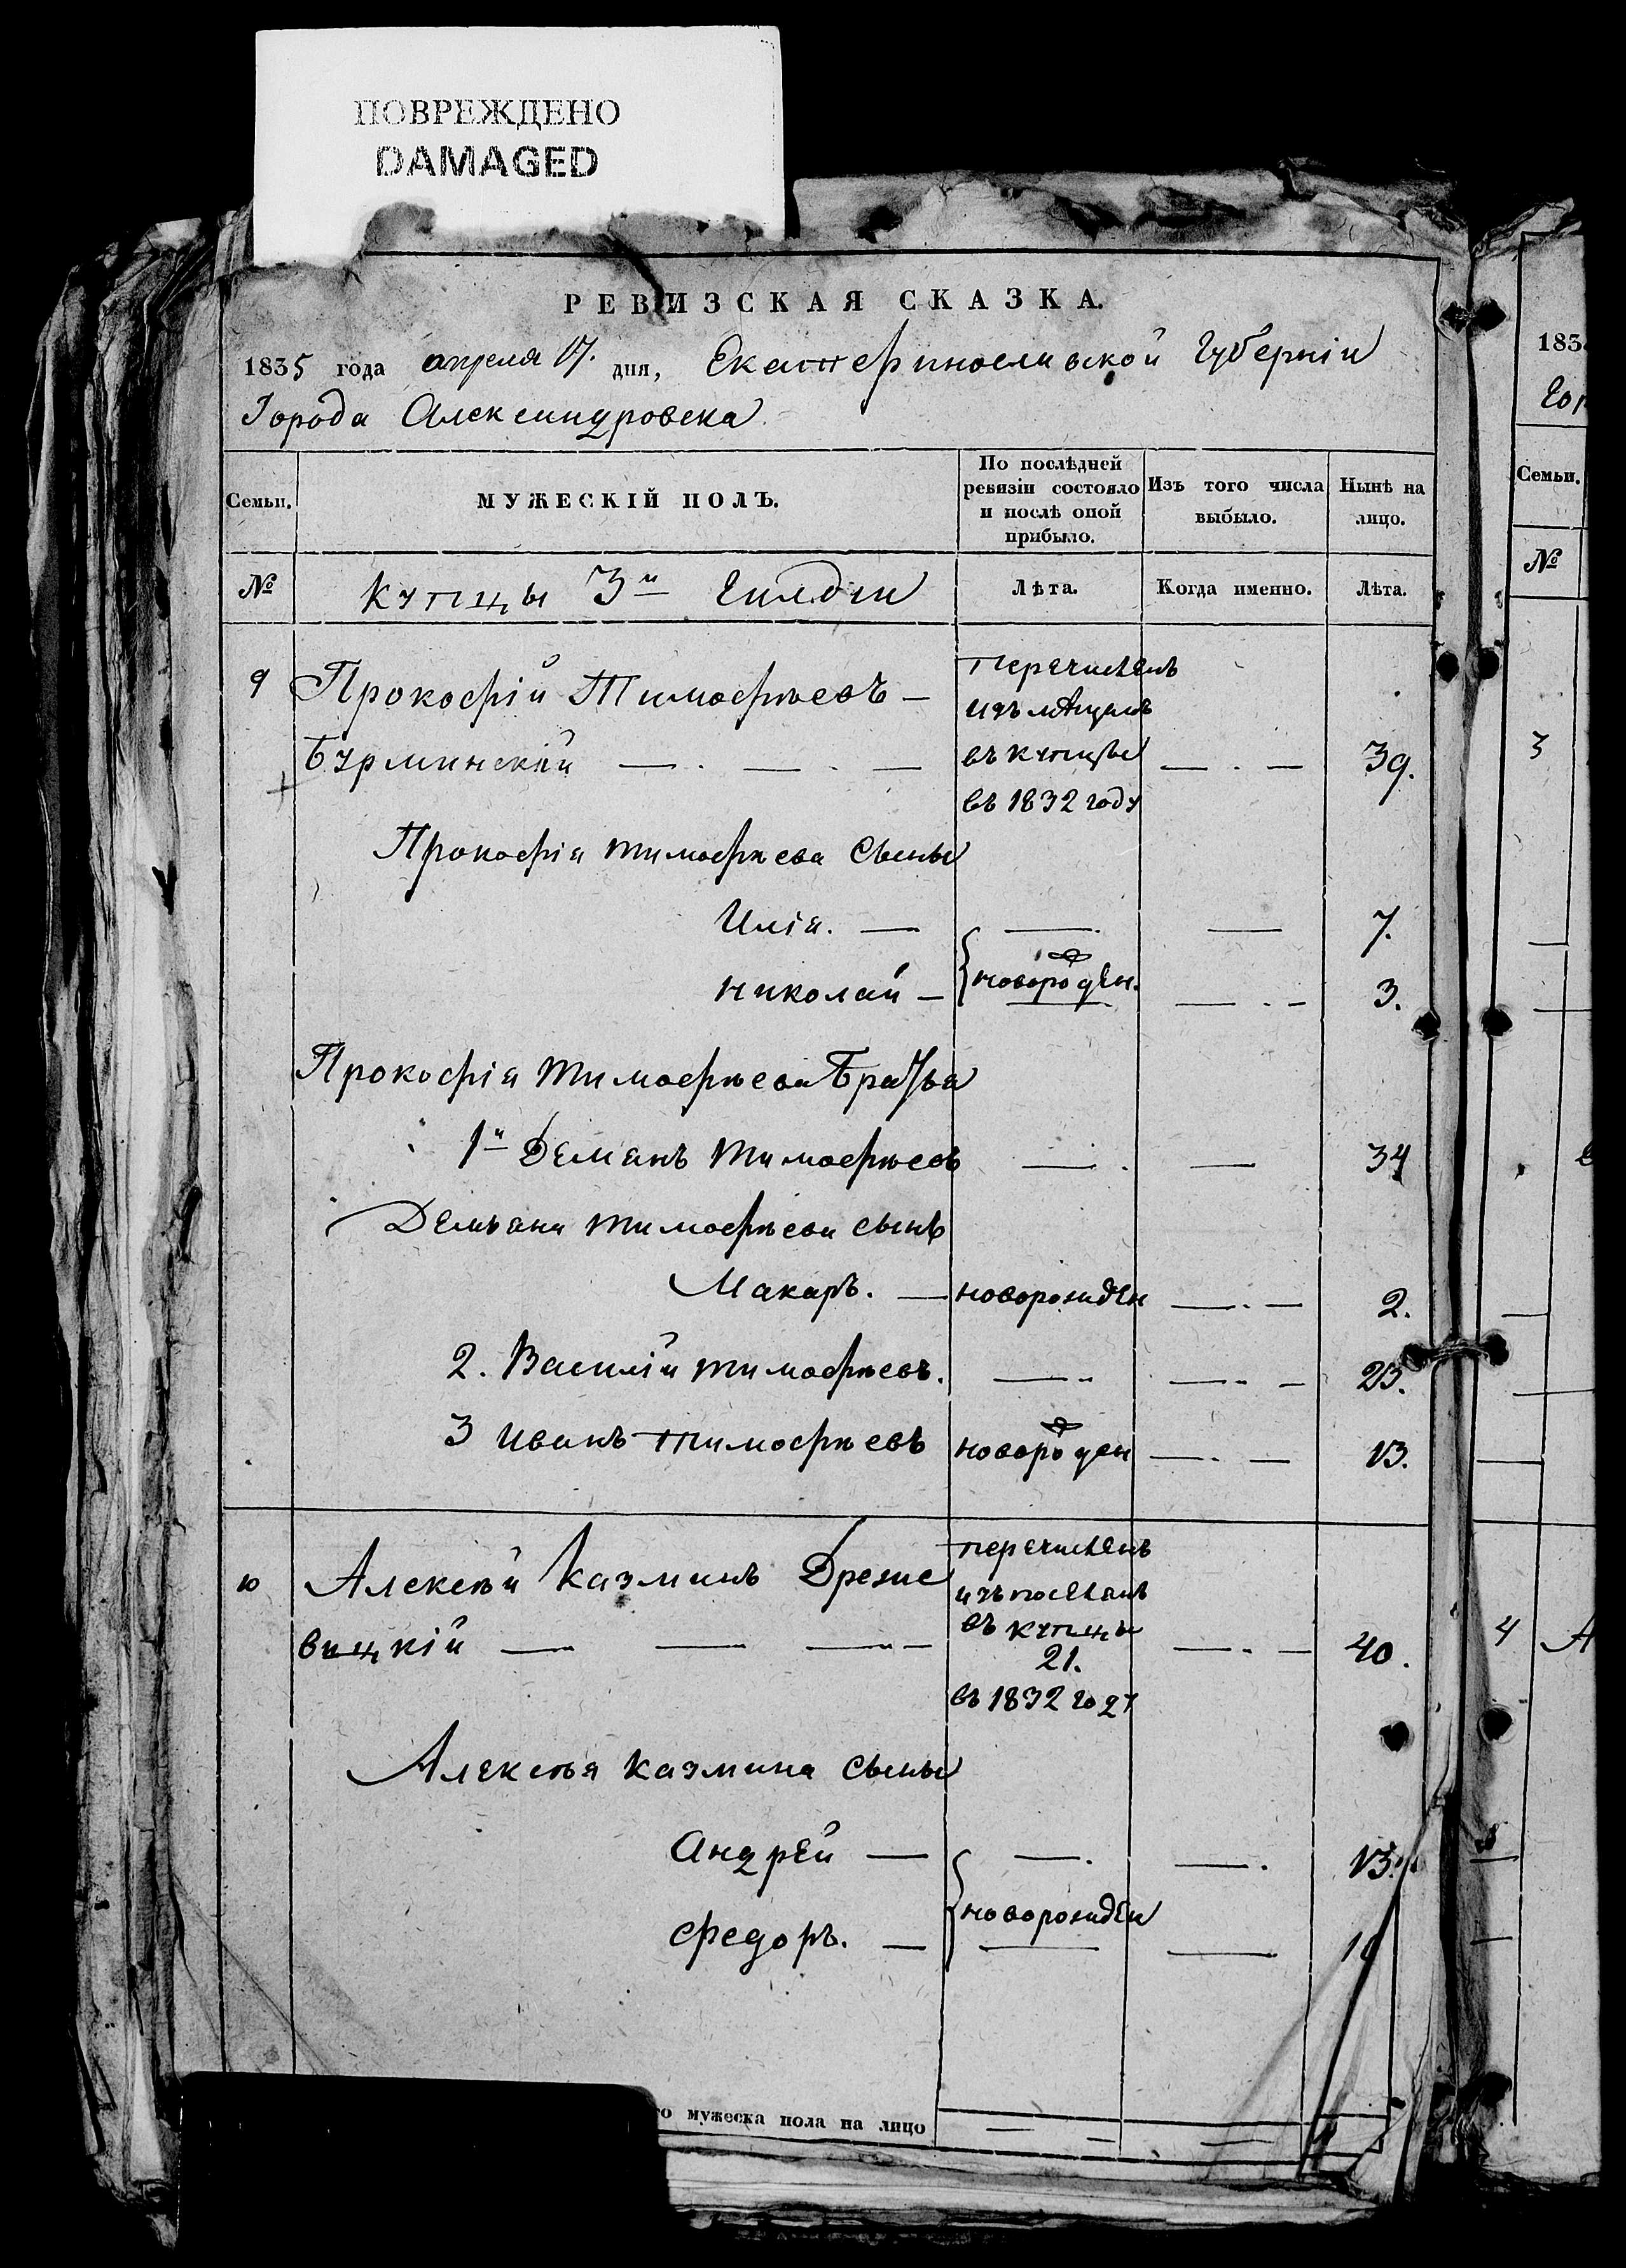 ПОВРЕЖДЕНО
DAMAGED
РЕВИЗСКАЯ СКАЗКА.
1835 года апреля 17. дня, Екатеринославской Губерніи
Города Александровска
Семьи.
МУЖЕСКІЙ ПОЛЪ.
По послѣдней
ревизіи состояло
и послѣ оной
прибыло.
Изъ того числа
выбыло.
Нынѣ на
лицо.
№ Купцы 3й Гилдіи Лѣта. Когда именно. Лѣта.
9 Прокофій Тимофѣевъ — перечисленъ
изъ мѣщанъ
Бурминскій — . — . — въ купцы — . — 39.
въ 1832 году
Прокофія тимофѣева Сыны
Илія. — — . — 7.
{новорожден.
николай — — . – 3.
Прокофія тимофѣева Братья
1й Демянъ тимофѣевъ — . — 34
Демьяна тимофѣева сынъ
Макаръ. — новорожден — . — 2.
2. Василій тимофѣевъ. — .. — .. –
3 иванъ тимофѣевъ новорожден — . — 13.
10 Алексѣй Казминъ Дреже перечисленъ
изъ
въ купцы
вицкій — — — – 21. — .. – 40.
въ 1832 году
Алексѣя казмина Сыны
Андрей — — . — . 13.
{новорожден
федоръ. — — —
го мужеска пола на лицо — — —
183
Гор
Семьи.
№
3
4 А